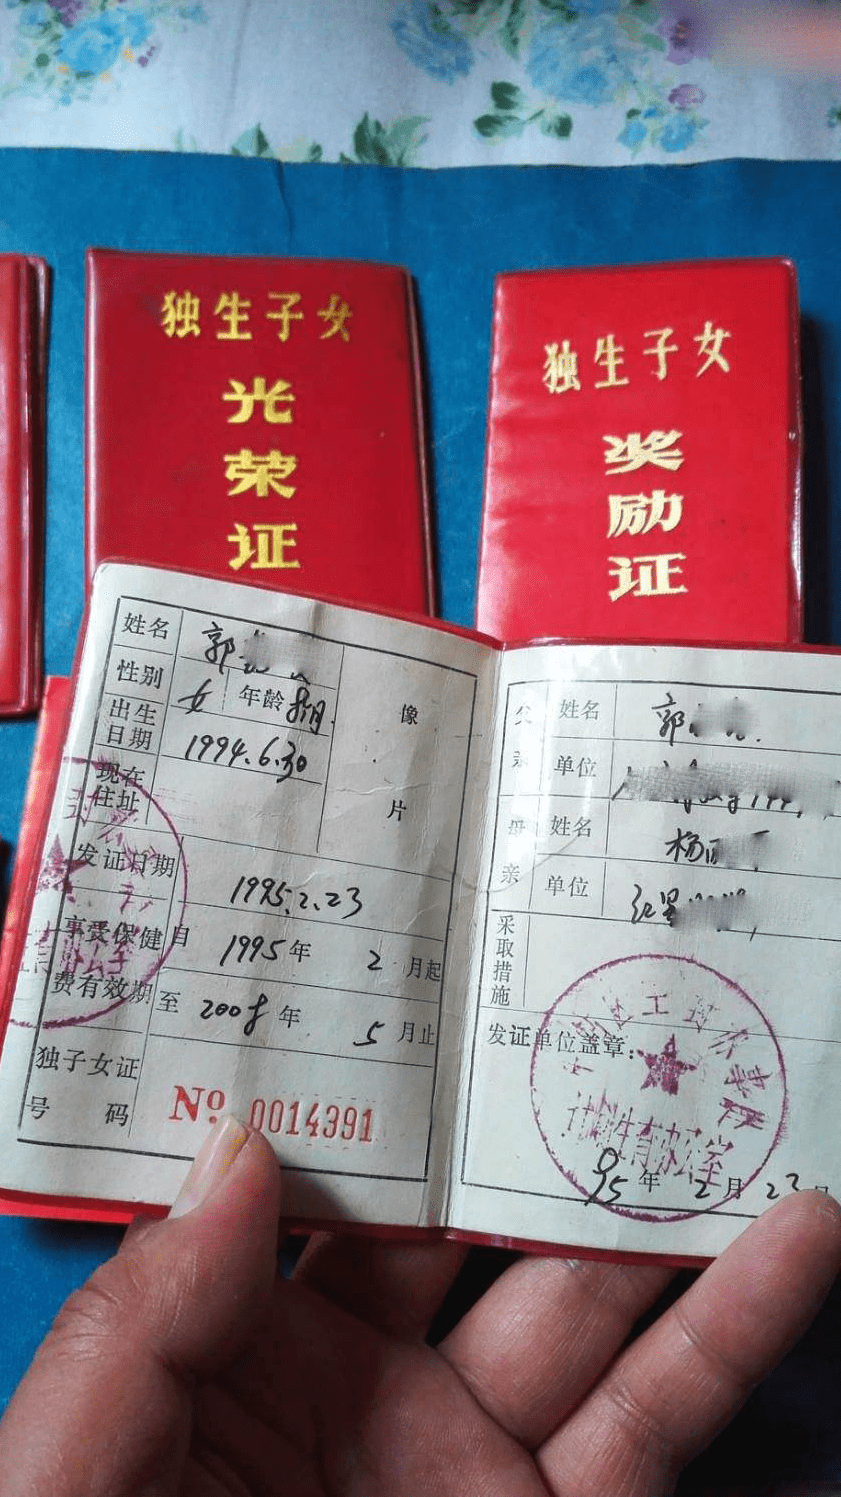 独生子女
光
荣
证
独生子女
奖
励
证
姓名 郭
性别 女 年龄 8个月
出生日期 1994.6.30
现在住址
像
片
发证日期 1995.2.23
享受保健费有效期
自 1995年 2月起
至 2008年 5月止
独子女证号码
No 0014391
父亲 姓名 郭
单位
母亲 姓名 杨
单位 红星
采取措施
发证单位盖章:
计划生育办公室
95年 2月 23日